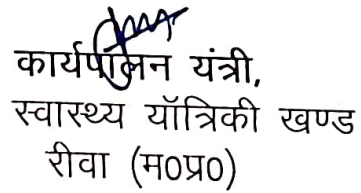 कार्यपालन यंत्री,
स्वास्थ्य यॉत्रिकी खण्ड
रीवा (म0प्र0)